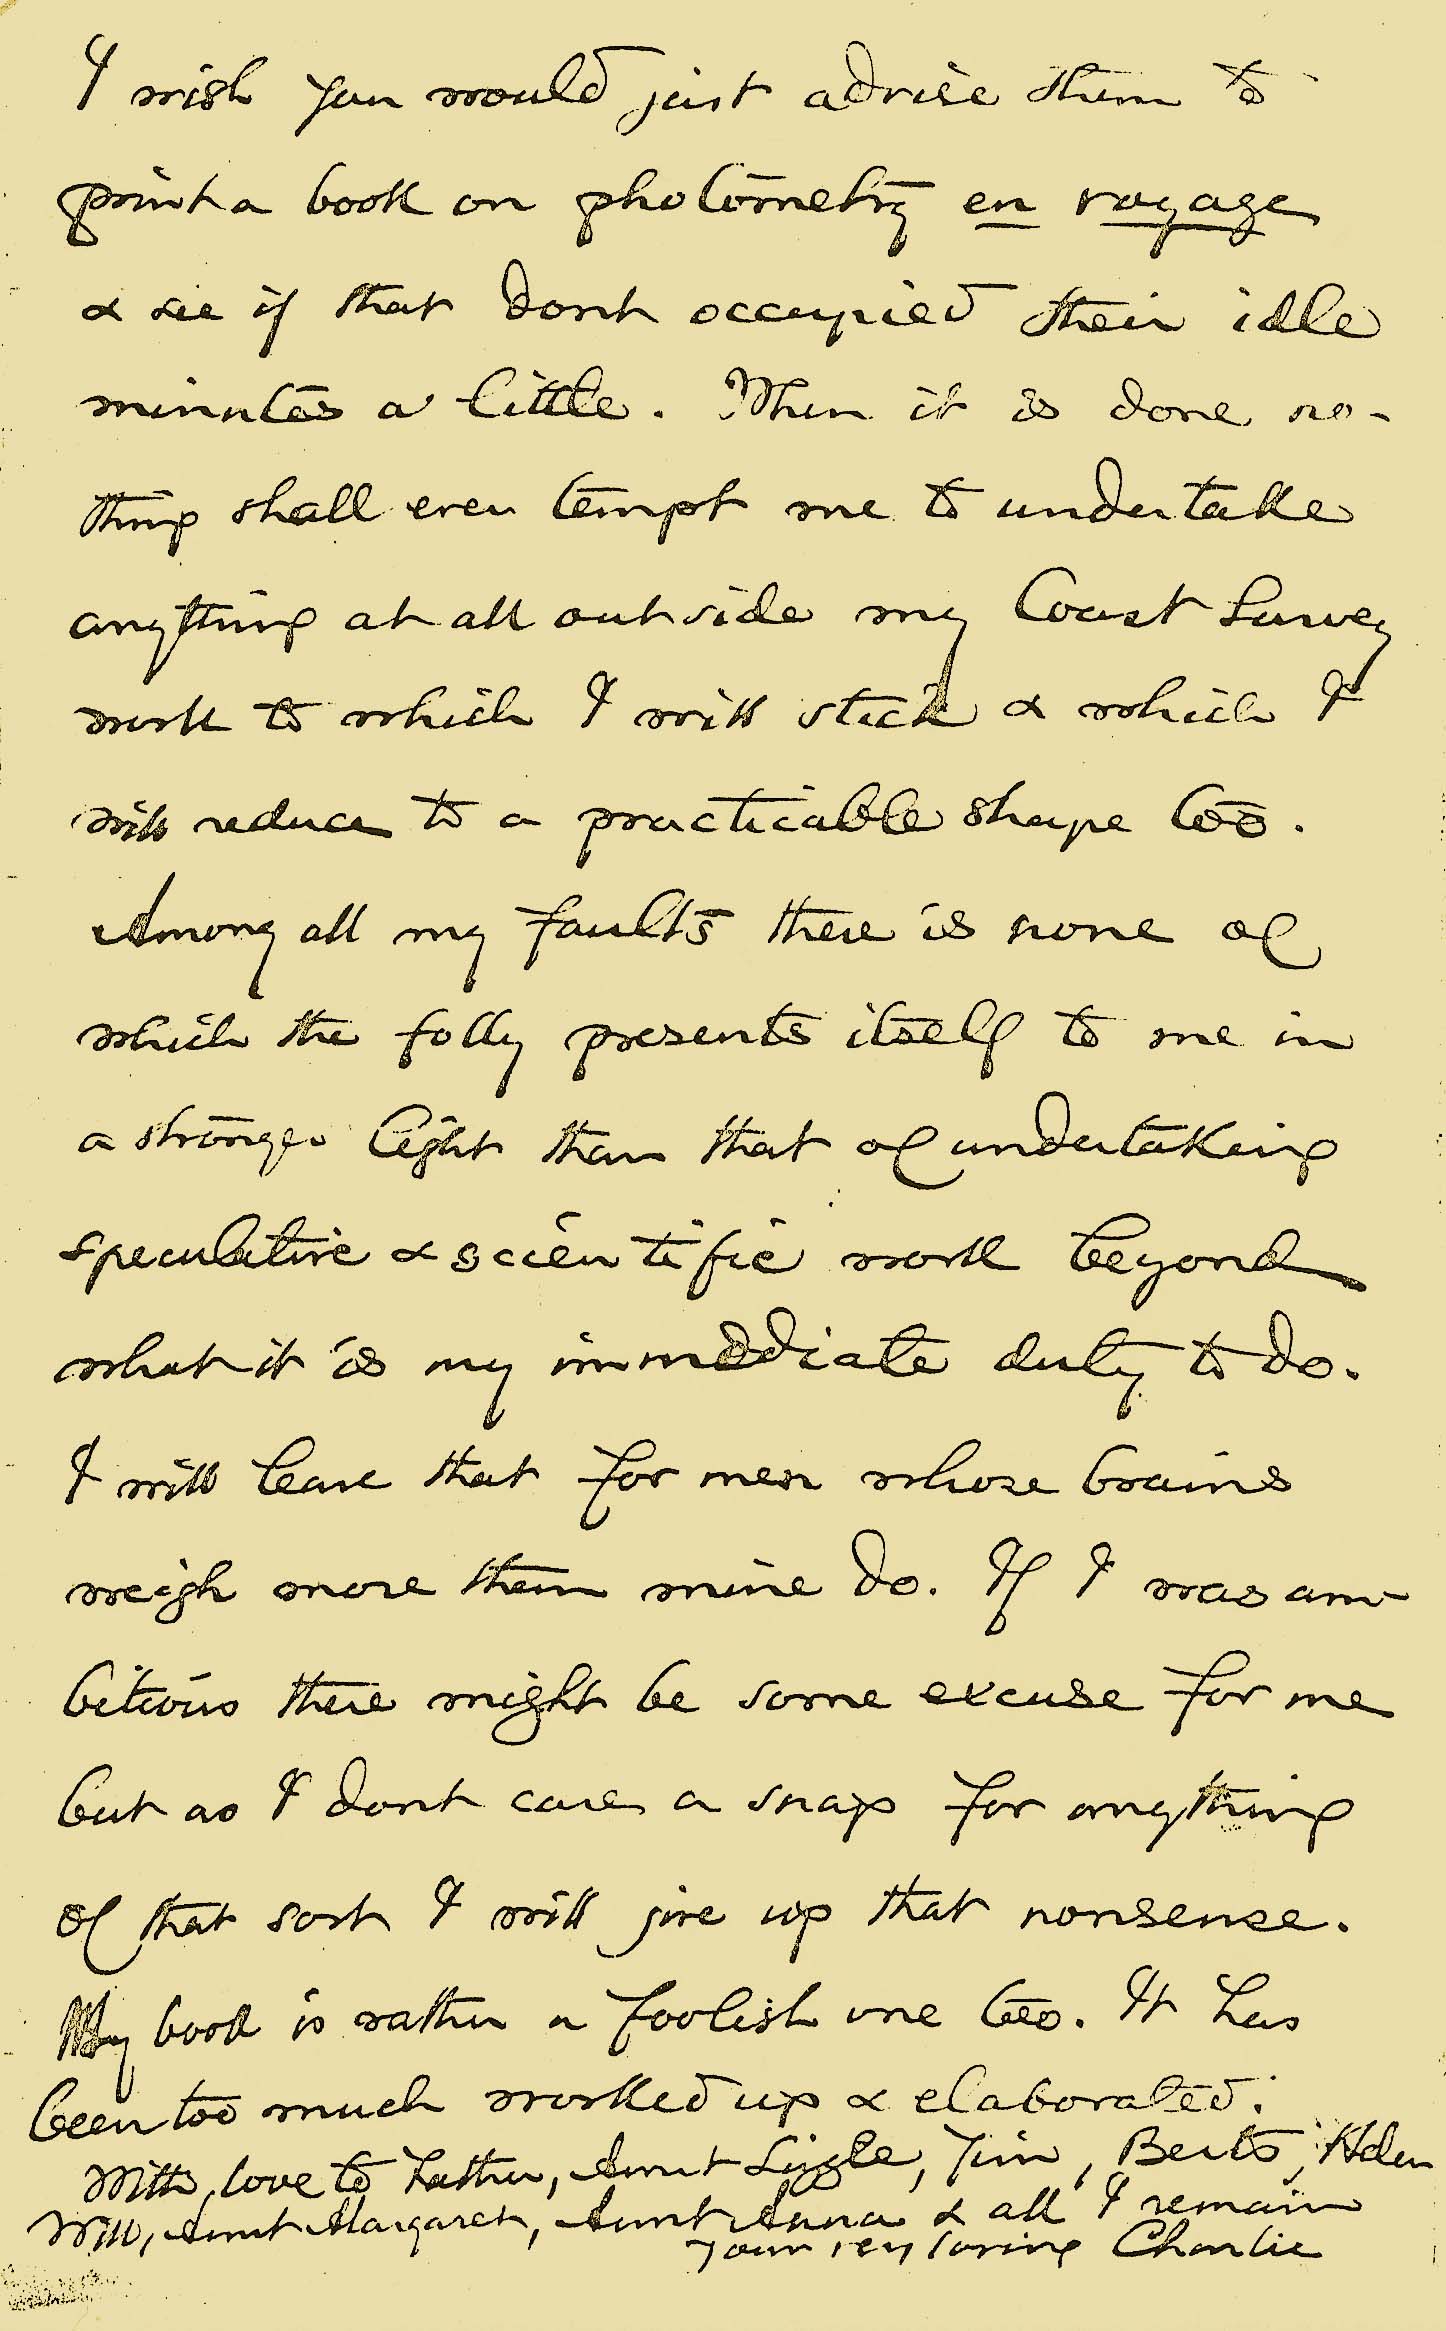 I wish you would just advise them to
print a book on photometry en voyage
& see if that dont occupied their idle
minutes a little. When it is done no-
thing shall ever tempt me to undertake
anything at all outside my Coast Survey
work to which I will stick & which I
will reduce to a practicable shape too.
Among all my faults there is none of
which the folly presents itself to me in
a stronger light than that of undertaking
speculative & scientific work beyond
what it is my immediate duty to do.
I will leave that for men whose brains
weigh more than mine do. If I was am-
bitious there might be some excuse for me
but as I dont care a snap for anything
of that sort I will give up that nonsense.
My book is rather a foolish one too. It has
been too much worked up & elaborated.
With love to Father, Aunt Lizzie, Jim, Berts, Helen
Will, Aunt Margaret, Aunt Anna & all I remain
your very loving Charlie